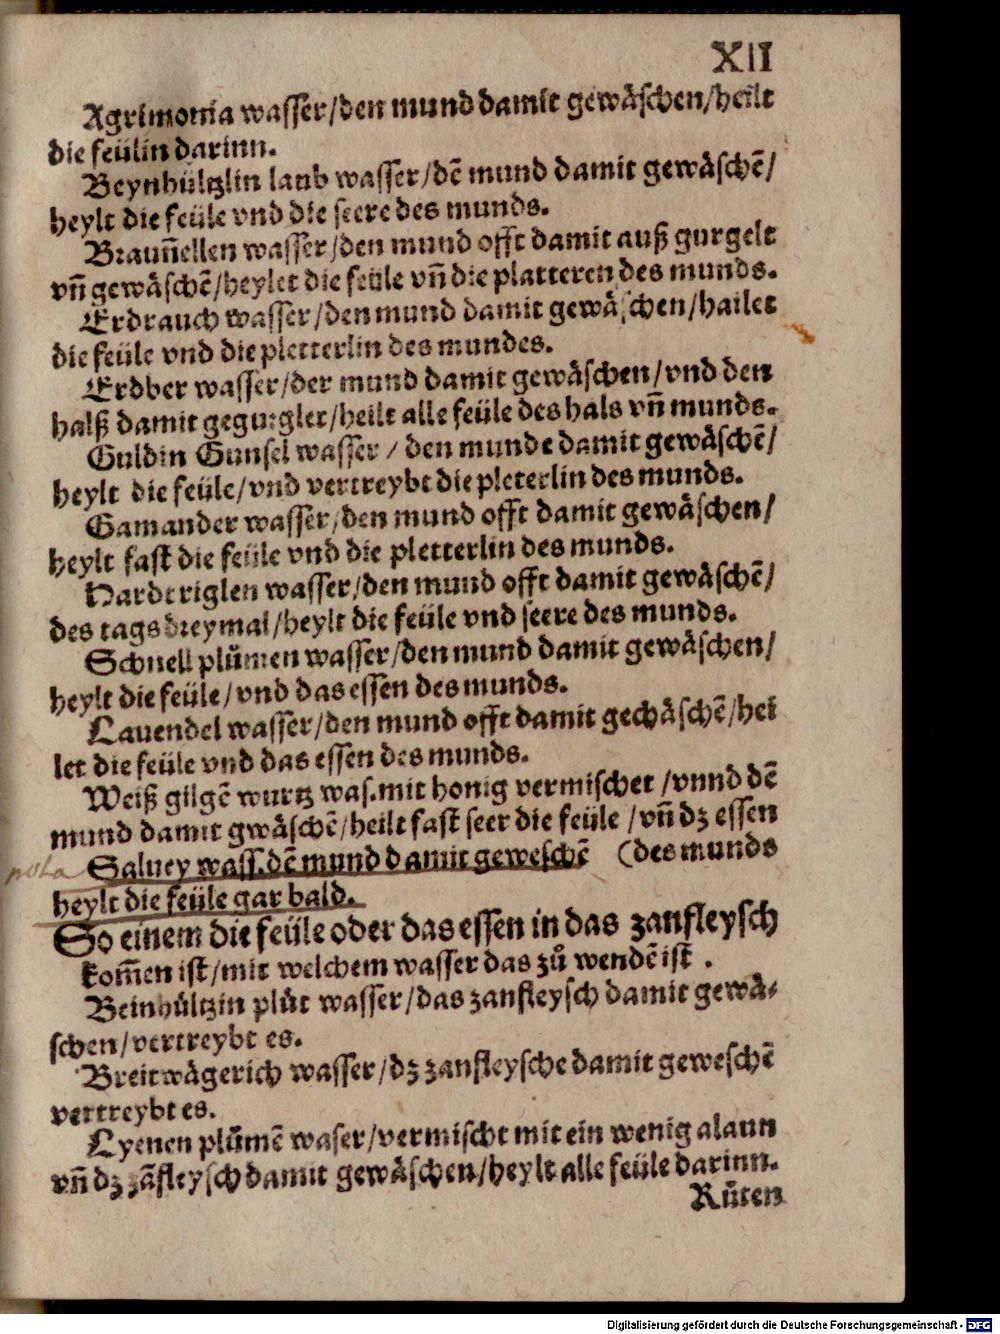 XII
Agrimonia wasser/den mund damit gewäschen/heilt
die feülin darinn.
Beynhültzlin laub wasser/dē mund damit gewäschē/
heylt die feüle vnd die seere des munds.
Braun̄ellen wasser/den mund offt damit auß gurgelt
vn̄ gewäschē/heylet die feüle vn̄ die platteren des munds.
Erdrauch wasser/den mund damit gewäschen/hailet
die feüle vnd die pletterlin des mundes.
Erdber wasser/der mund damit gewäschen/vnd den
halß damit gegurglet/heilt alle feüle des hals vn̄ munds.
Guldin Gunsel wasser/den munde damit gewäschē/
heylt die feüle/vnd vertreybt die pleterlin des munds.
Gamander wasser/den mund offt damit gewäschen/
heylt fast die feüle vnd die pletterlin des munds.
Harderiglen wasser/den mund offt damit gewäschē/
des tags dreymal/heylt die feüle vnd seere des munds.
Schnell plůmen wasser/den mund damit gewäschen/
heylt die feüle/vnd das essen des munds.
Lauendel wasser/den mund offt damit gechäschē/hei
let die feüle vnd das essen des munds.
Weiß gilgē wurtz was.mit honig vermischet/vnnd dē
mund damit gwäschē/heilt fast seer die feüle/vn̄ dz essen
nota Saluey wass.dē mund damit geweschē (des munds
heylt die feüle gar bald.
So einem die feüle oder das essen in das zanfleysch
kom̄en ist/mit welchem wasser das zů wendē ist.
Beinhültzin plüt wasser/das zanfleysch damit gewä-
schen/vertreybt es.
Breitwägerich wasser/dz zanfleysche damit geweschē
vertreybt es.
Lyenen plůmē waser/vermischt mit ein wenig alaun
vn̄ dz zāfleysch damit gewäschen/heylt alle feüle darinn.
Růten
Digitalisierung gefördert durch die Deutsche Forschungsgemeinschaft - DFG